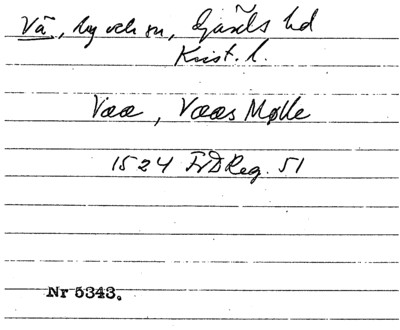 Vä, by och sn, Gärds hd
Krist. l.
Vaa, Vaas Mølle
1524 FrDReg. 51
Nr 5343.